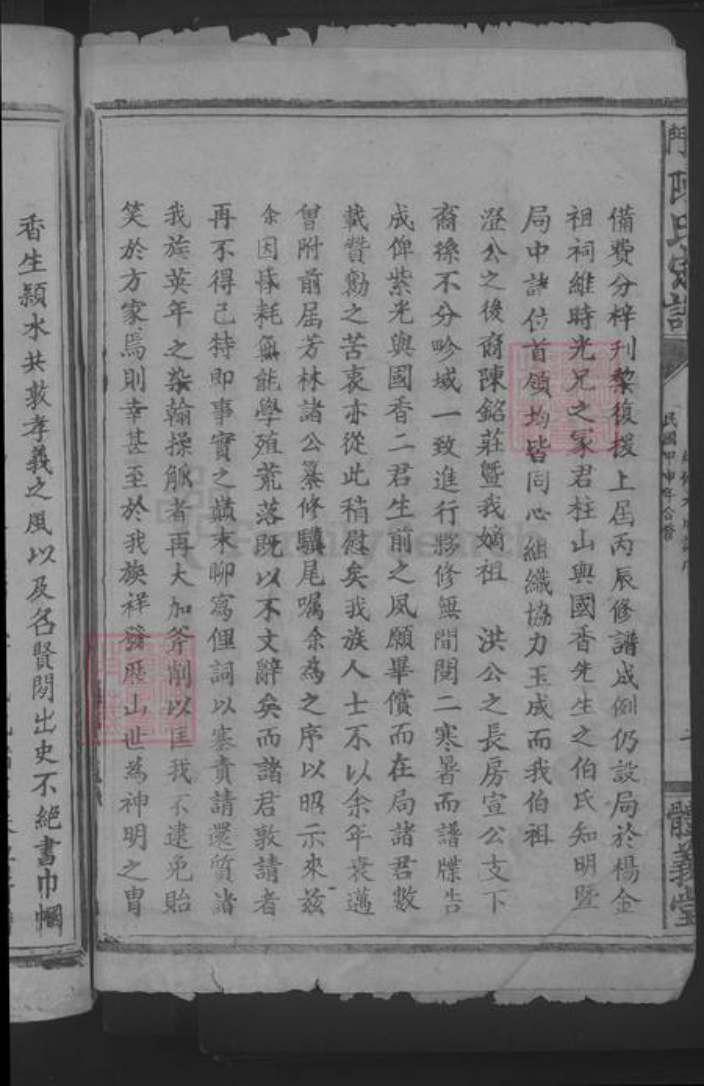 陳氏宗譜
民國甲申年合修
體義堂
備費分梓刊黎復援上屆丙辰修譜成例仍設局於楊金
祖祠維時光兄之冢君柱山與國香先生之伯氏知明暨
局中諸位首領均皆同心組織協力玉成而我伯祖
澄公之後裔陳銘莊暨我嫡祖　洪公之長房宣公支下
裔孫不分畛域一致進行夥修無間閱二寒暑而譜牒告
成俾紫光與國香二君生前之夙願畢償而在局諸君數
載贊勷之苦衷亦從此稍慰矣我族人士不以余年衰邁
曾附前屆芳林諸公纂修驥尾囑余為之序以昭示來茲
余因昏耗無能學殖荒落既以不文辭矣而諸君敦請者
再不得已特即事實之巔末聊寫俚詞以塞責請還質諸
我族英年之染翰操觚者再大加斧削以匡我不逮免貽
笑於方家焉則幸甚至於我族祥發歷山世為神明之冑
香生潁水共敦孝義之風以及名賢閎出史不絕書巾幗